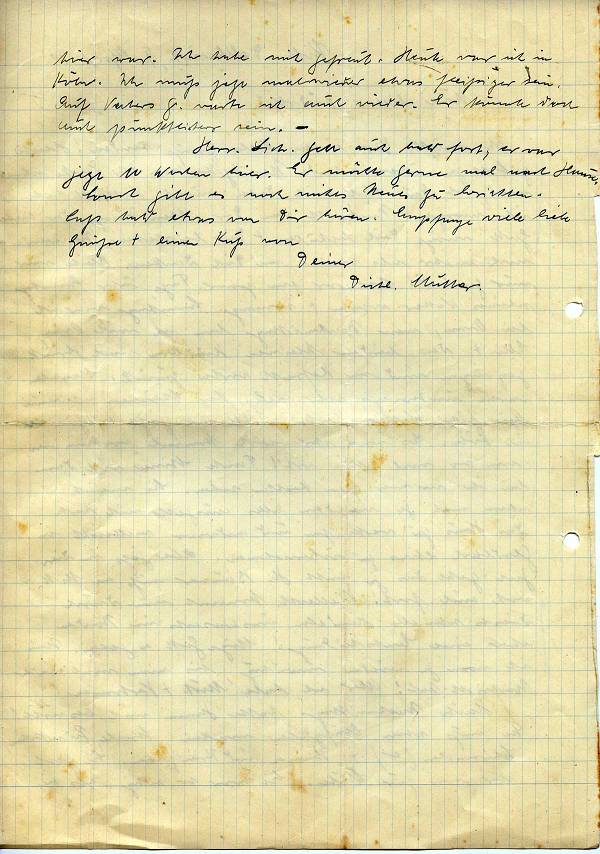 hier war. Ich habe mich gefreut. Heute war ich in
Köln. Ich muß jetzt mal wieder etwas fleißiger sein.
Auf Vaters G. warte ich auch wieder. Er könnte doch
auch pünktlicher sein. –
Herr. Lich. geht auch bald fort, er war
jetzt 10 Wochen hier. Er möchte gerne mal nach Hause,
Sonst gibt es noch nichts Neues zu berichten.
Laß bald etwas von Dir hören. Empfange viele liebe
Grüße + einen Kuß von
Deiner
Mutter.